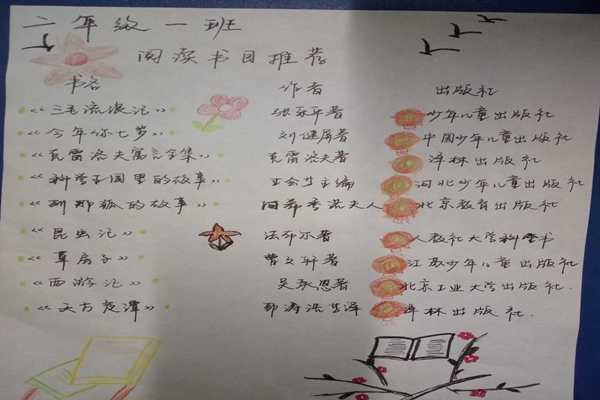 二年级一班
阅读书目推荐
书名 作者 出版社
《三毛流浪记》 张乐平著 少年儿童出版社
《今年你七岁》 刘健屏著 中国少年儿童出版社
《克雷洛夫寓言全集》 克雷洛夫著 译林出版社
《科学王国里的故事》 王会主编 河北少年儿童出版社
《列那狐的故事》 阿希季浪夫人 北京教育出版社
《昆虫记》 法布尔著 人教社大学科学书
《草房子》 曹文轩著 江苏少年儿童出版社
《西游记》 吴承恩著 北京工业大学出版社.
《天方夜谭》 郅涛浩等译 译林出版社.